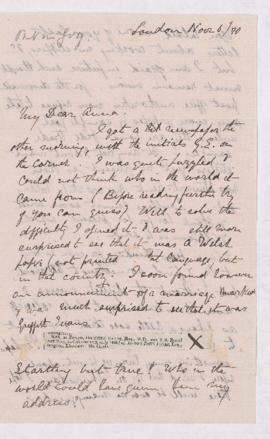 London Nov 6/90
My Dear Anna.
I got a Welsh newspaper the
other morning, with the initials G.E. on
the corner. I was quite puzzled I
could not think who in the world it
came from (Before reading further try
if you can guess) Well to solve the
difficulty I opened it & was still more
surprised to see that it was a Welsh
paper (not printed in that language but
in that country) I soon found however
an announcement of a marriage marked
& was much surprised to see that it was
Griffith Evans
X
Startling but true! Who in the
world could have given him my
address?